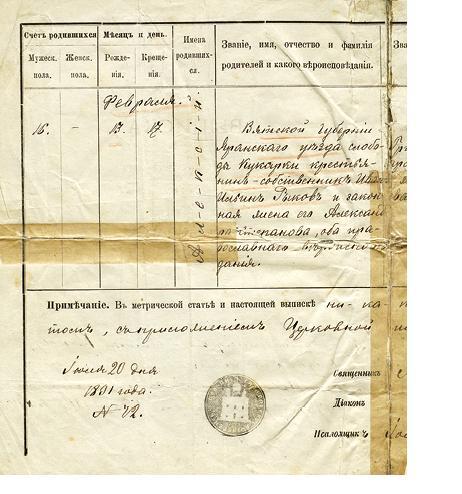 Счетъ родившихся
Мѣсяцъ и день.
Имена родивших-ся.
Званіе, имя, отчество и фамилія
родителей и какого вѣроисповѣданія.
Зва
Мужеск. пола.
Женск. пола.
Рожде-нія,
Креще-нія.
Февраля.
16.
-
13
17.
Алексій
Вятской губерніи
Яранскаго уѣзда слобо-
ды Кукарки крестья-
нинъ-собственникъ Иванъ
Ильинъ Рыковъ и закон-
ная жена его Алексан-
дра Степанова, оба пра-
вославнаго вѣроиспо-
вѣданія.
Примѣчаніе. Въ метрической статьѣ и настоящей выпискѣ
Церковной
Іюля 20 дня
1891 года.
№ 72.
Священникъ
Діаконъ
Псаломщикъ